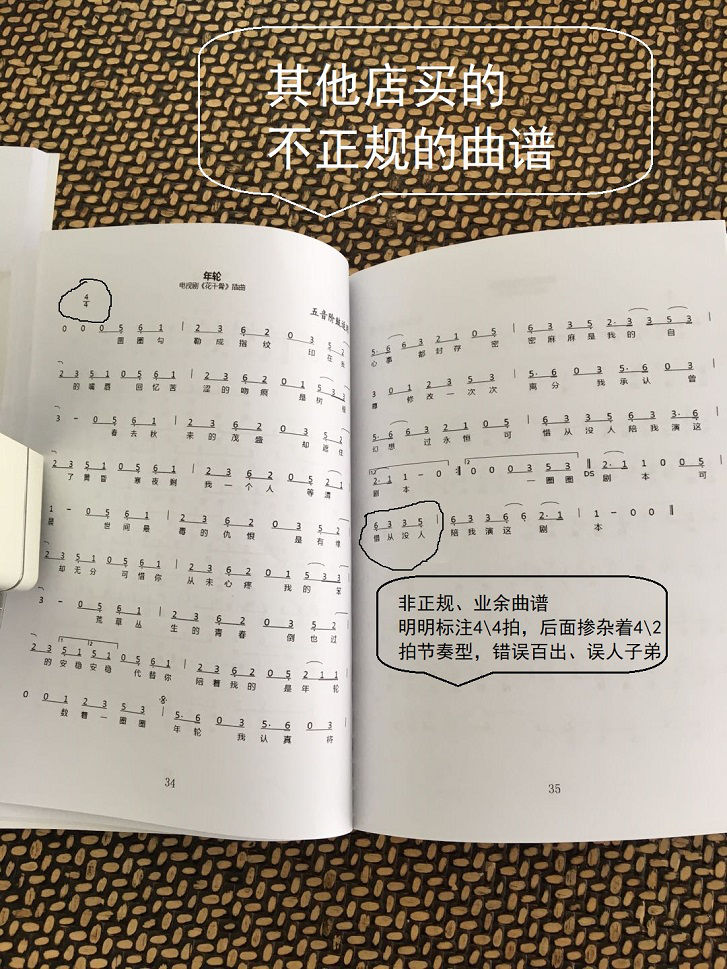 其他店买的
不正规的曲谱
年轮
电视剧《花千骨》插曲
4
4
五音阶鼓
0 0 0 5 6 1 | 2 3 6 2 0 3 5 2
圆圈勾 勒成指纹 印在我
2 3 5 1 0 5 6 1 2 3 6 2 0 1 5 3 3
的嘴唇 回忆苦 涩的吻痕 是树根
3 - 0 5 6 1 | 2 3 6 2 0 3 5 2
春去秋 来的茂盛 却遮住
2 3 5 1 0 5 6 1 2 3 6 2 0 5 2 1
了黄昏 寒夜剩 我一个人 等清
1 - 0 5 6 1 | 2 3 6 2 0 3 5 2
晨 世间最 毒的仇恨 是有缘
2 3 5 1 0 5 6 1 2 3 6 2 0 1 5 3
却无分 可惜你 从未心疼 我的笨
3 - 0 5 6 1 | 2 3 6 2 0 3 5 2
荒草丛 生的青春 倒也过
2 3 5 1 5 1 0 5 6 1 2 3 6 2 0 5 2 1
的安稳安稳 代替你 陪着我的 是年轮
0 0 1 2 3 5 3 | 5· 6 0 3 5· 6 0 3
数着一圈圈 年轮 我认真 将
34
5· 6 6 3 2 1 0 5 | 6 3 3 5 2 3 3 5 3
心事 都封存 密 密麻麻是我的 自
3 0 1 2 3 5 3 | 5· 6 0 3 5· 6 0 3
尊 修改一次次 离分 我承认 曾
5· 6 6 3 2 1 0 5 | 6 3 3 5 6 3 3 5 6
幻想 过永恒 可 惜从没人陪我演这
2· 1 1 - 0 :‖ 0 0 0 3 5 3 ‖ DS 2· 1 1 0 0 5
剧本 一圈圈 剧本 可
6 3 3 5 | 6 3 3 5 6 2· 1 | 1 - 0 0 ‖
惜从没人 陪我演这 剧 本
非正规、业余曲谱
明明标注4\4拍，后面掺杂着4\2
拍节奏型，错误百出、误人子弟
35